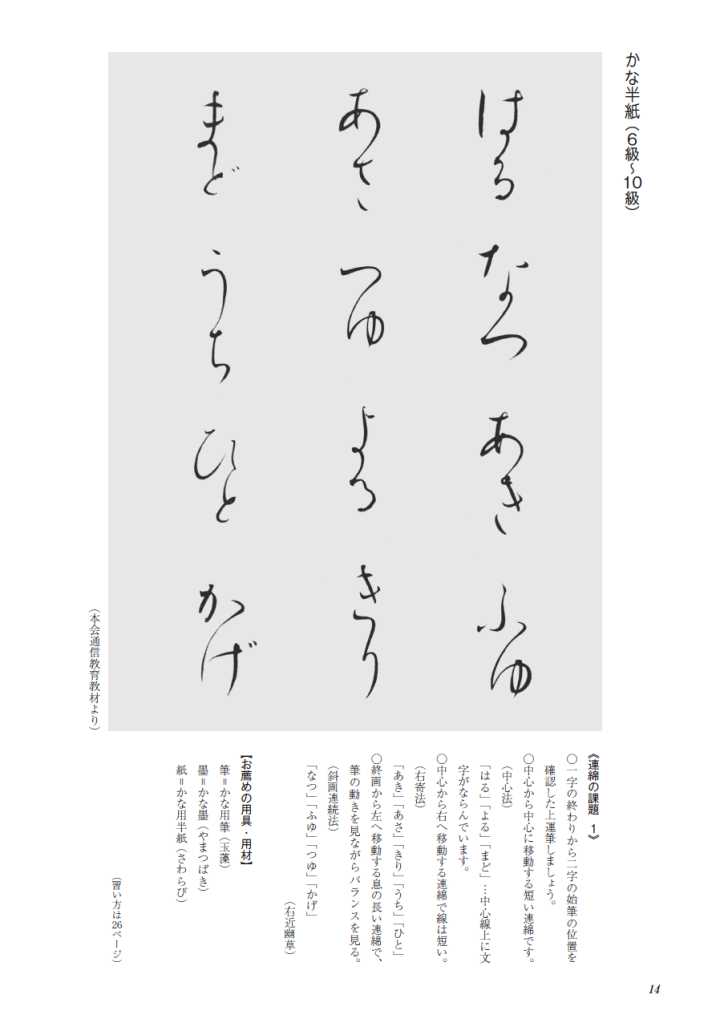 かな半紙（6級〜10級）
はる なつ あき ふゆ
あさ つゆ よる きり
まど うち ひと かげ
（本会通信教育教材より）
《連綿の課題 1》
〇一字の終わりから二字の始筆の位置を
確認した上運筆しましょう。
〇中心から中心に移動する短い連綿です。
（中心法）
「はる」「よる」「まど」…中心線上に文
字がならんでいます。
〇中心から右へ移動する連綿で線は短い。
（右寄法）
「あき」「あさ」「きり」「うち」「ひと」
〇終画から左へ移動する息の長い連綿で、
筆の動きを見ながらバランスを見る。
（斜画連続法）
「なつ」「ふゆ」「つゆ」「かげ」
（右近幽草）
【お薦めの用具・用材】
筆＝かな用筆（玉藻）
墨＝かな墨（やまつばき）
紙＝かな用半紙（さわらび）
（習い方は26ページ）
14